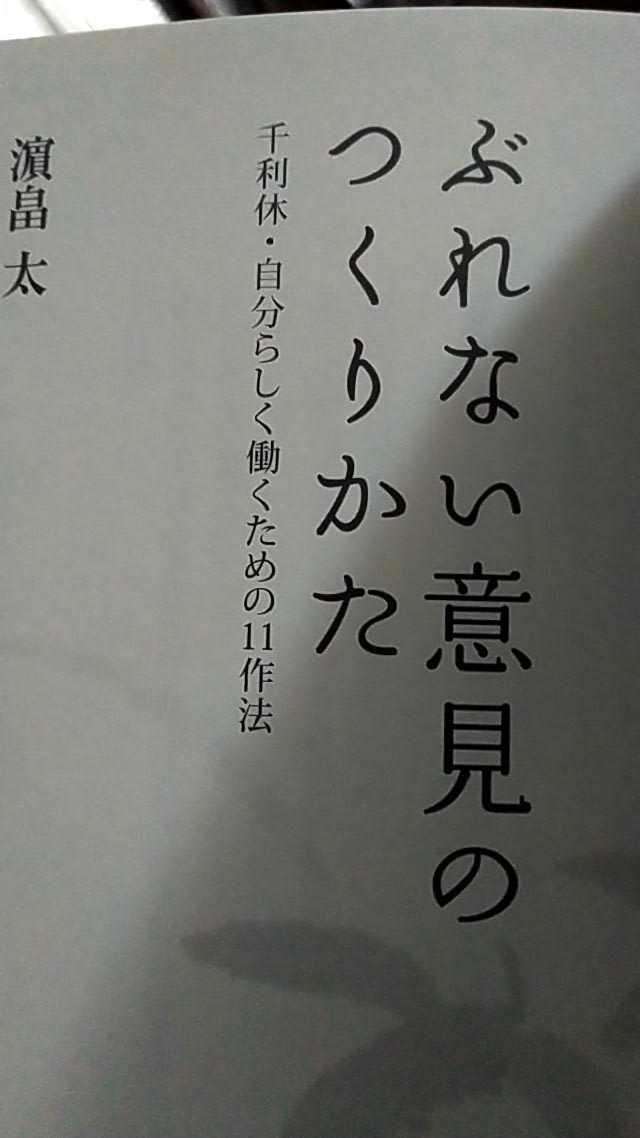 ぶれない意見の
つくりかた
千利休・自分らしく働くための11作法
濵畠 太